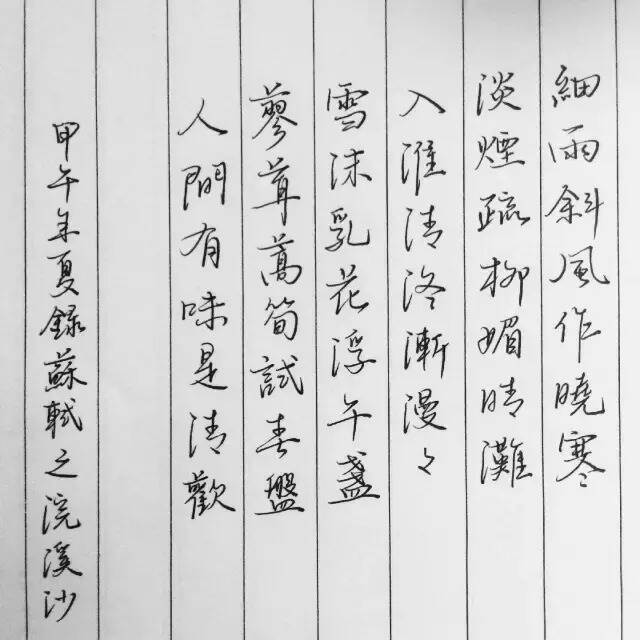 細雨斜風作曉寒
淡煙疏柳媚晴灘
入淮清洛漸漫々
雪沫乳花浮午盞
蓼茸蒿筍試春盤
人間有味是清歡
甲午年夏錄蘇軾之浣溪沙